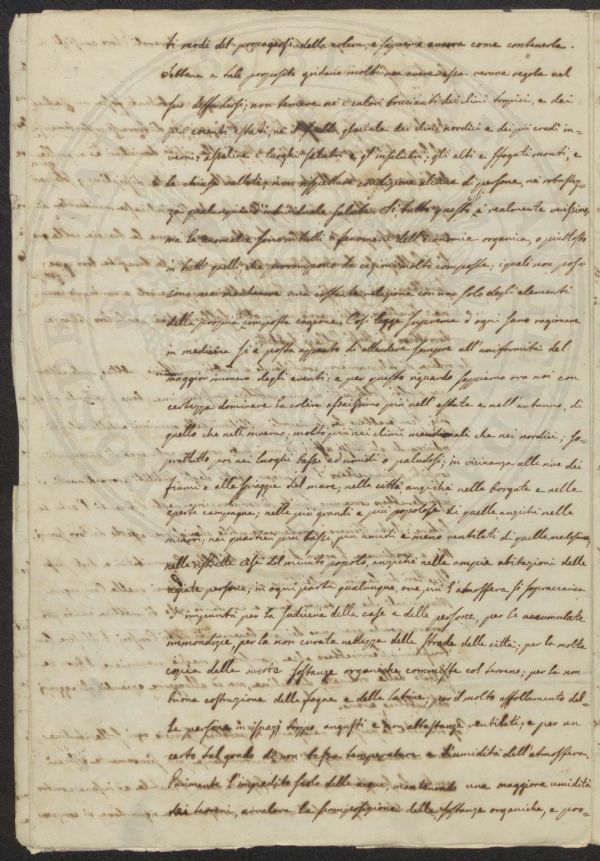 ti modi del propagarsi della colera, e sapremo ancora come contenerla.
Sebbene a tale proposito gridano molti non avere essa veruna regola nel
suo diffondersi; non temere nè i calori brucianti dei climi tropici, e dei
più cocenti estati, nè il gelo glaciale dei climi nordici e dei più crudi in-
verni; assalire i luoghi salubri e gl'insalubri; gli alti e sfogati monti, e
le chiuse vallate; non rispettare condizione alcuna di persone, nè robustez-
za qualunque d'individuale salute. Sì tutto questo è realmente verissimo,
ma le anomalie sono in tutti i fenomeni dell'economia organica, o piuttosto
in tutti quelli, che prorompono da cagioni molto composte; i quali non pos-
sono mai mantenere una costante relazione con uno solo degli elementi
della propria composta cagione. Così legge suprema d'ogni sano ragionare
in medicina si è posta appunto di attendere sempre all'uniformità del
maggior numero degli eventi: e per questo riguardo sappiamo ora noi con
certezza dominare la colera assaissimo più nell'estate e nell'autunno, di
quello che nell'inverno; molto più nei climi meridionali che nei nordici; so-
prattutto poi nei luoghi bassi ed umidi o paludosi; in vicinanza alle rive dei
fiumi o alle spiagge del mare; nelle città anzichè nelle borgate e nelle
aperte campagne; nelle più grandi e più popolose di quelle anzichè nelle
minori; nei quartieri più bassi, più umidi e meno ventilati di quelle
nelle ristrette case del minuto popolo, anzichè nelle ampie abitazioni delle
agiate persone; in ogni parte qualunque, ove più l'atmosfera si sopraccarica
d'impurità per la sudiceria delle case e delle persone, per le accumulate
immondizie, per la non curata nettezza delle strade delle città; per la molta
copia delle morte sostanze organiche commiste col terreno; per la non
buona costruzione delle fogne e delle latrine; per il molto affollamento del-
le persone in ispazi troppo angusti e non abbastanza ventilati; e per un
certo tal grado di non bassa temperatura e d'umidità dell'atmosfera.
Parimente l'impedito scolo delle acque, mantenendo una maggiore umidità
dei terreni, avvalora la scomposizione delle sostanze organiche, e pro-